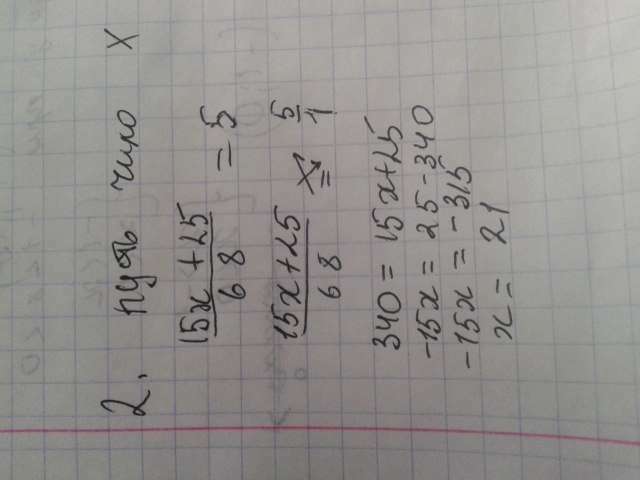 2. пусть число x
15x+25 / 68 = 5
15x+25 / 68 = 5 / 1
340 = 15x+25
-15x = 25-340
-15x = -315
x = 21